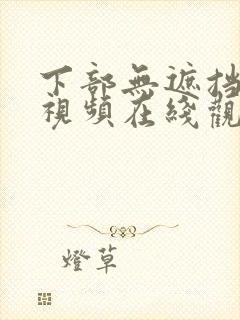 下部無遮挡
視頻在綫觀
燈草